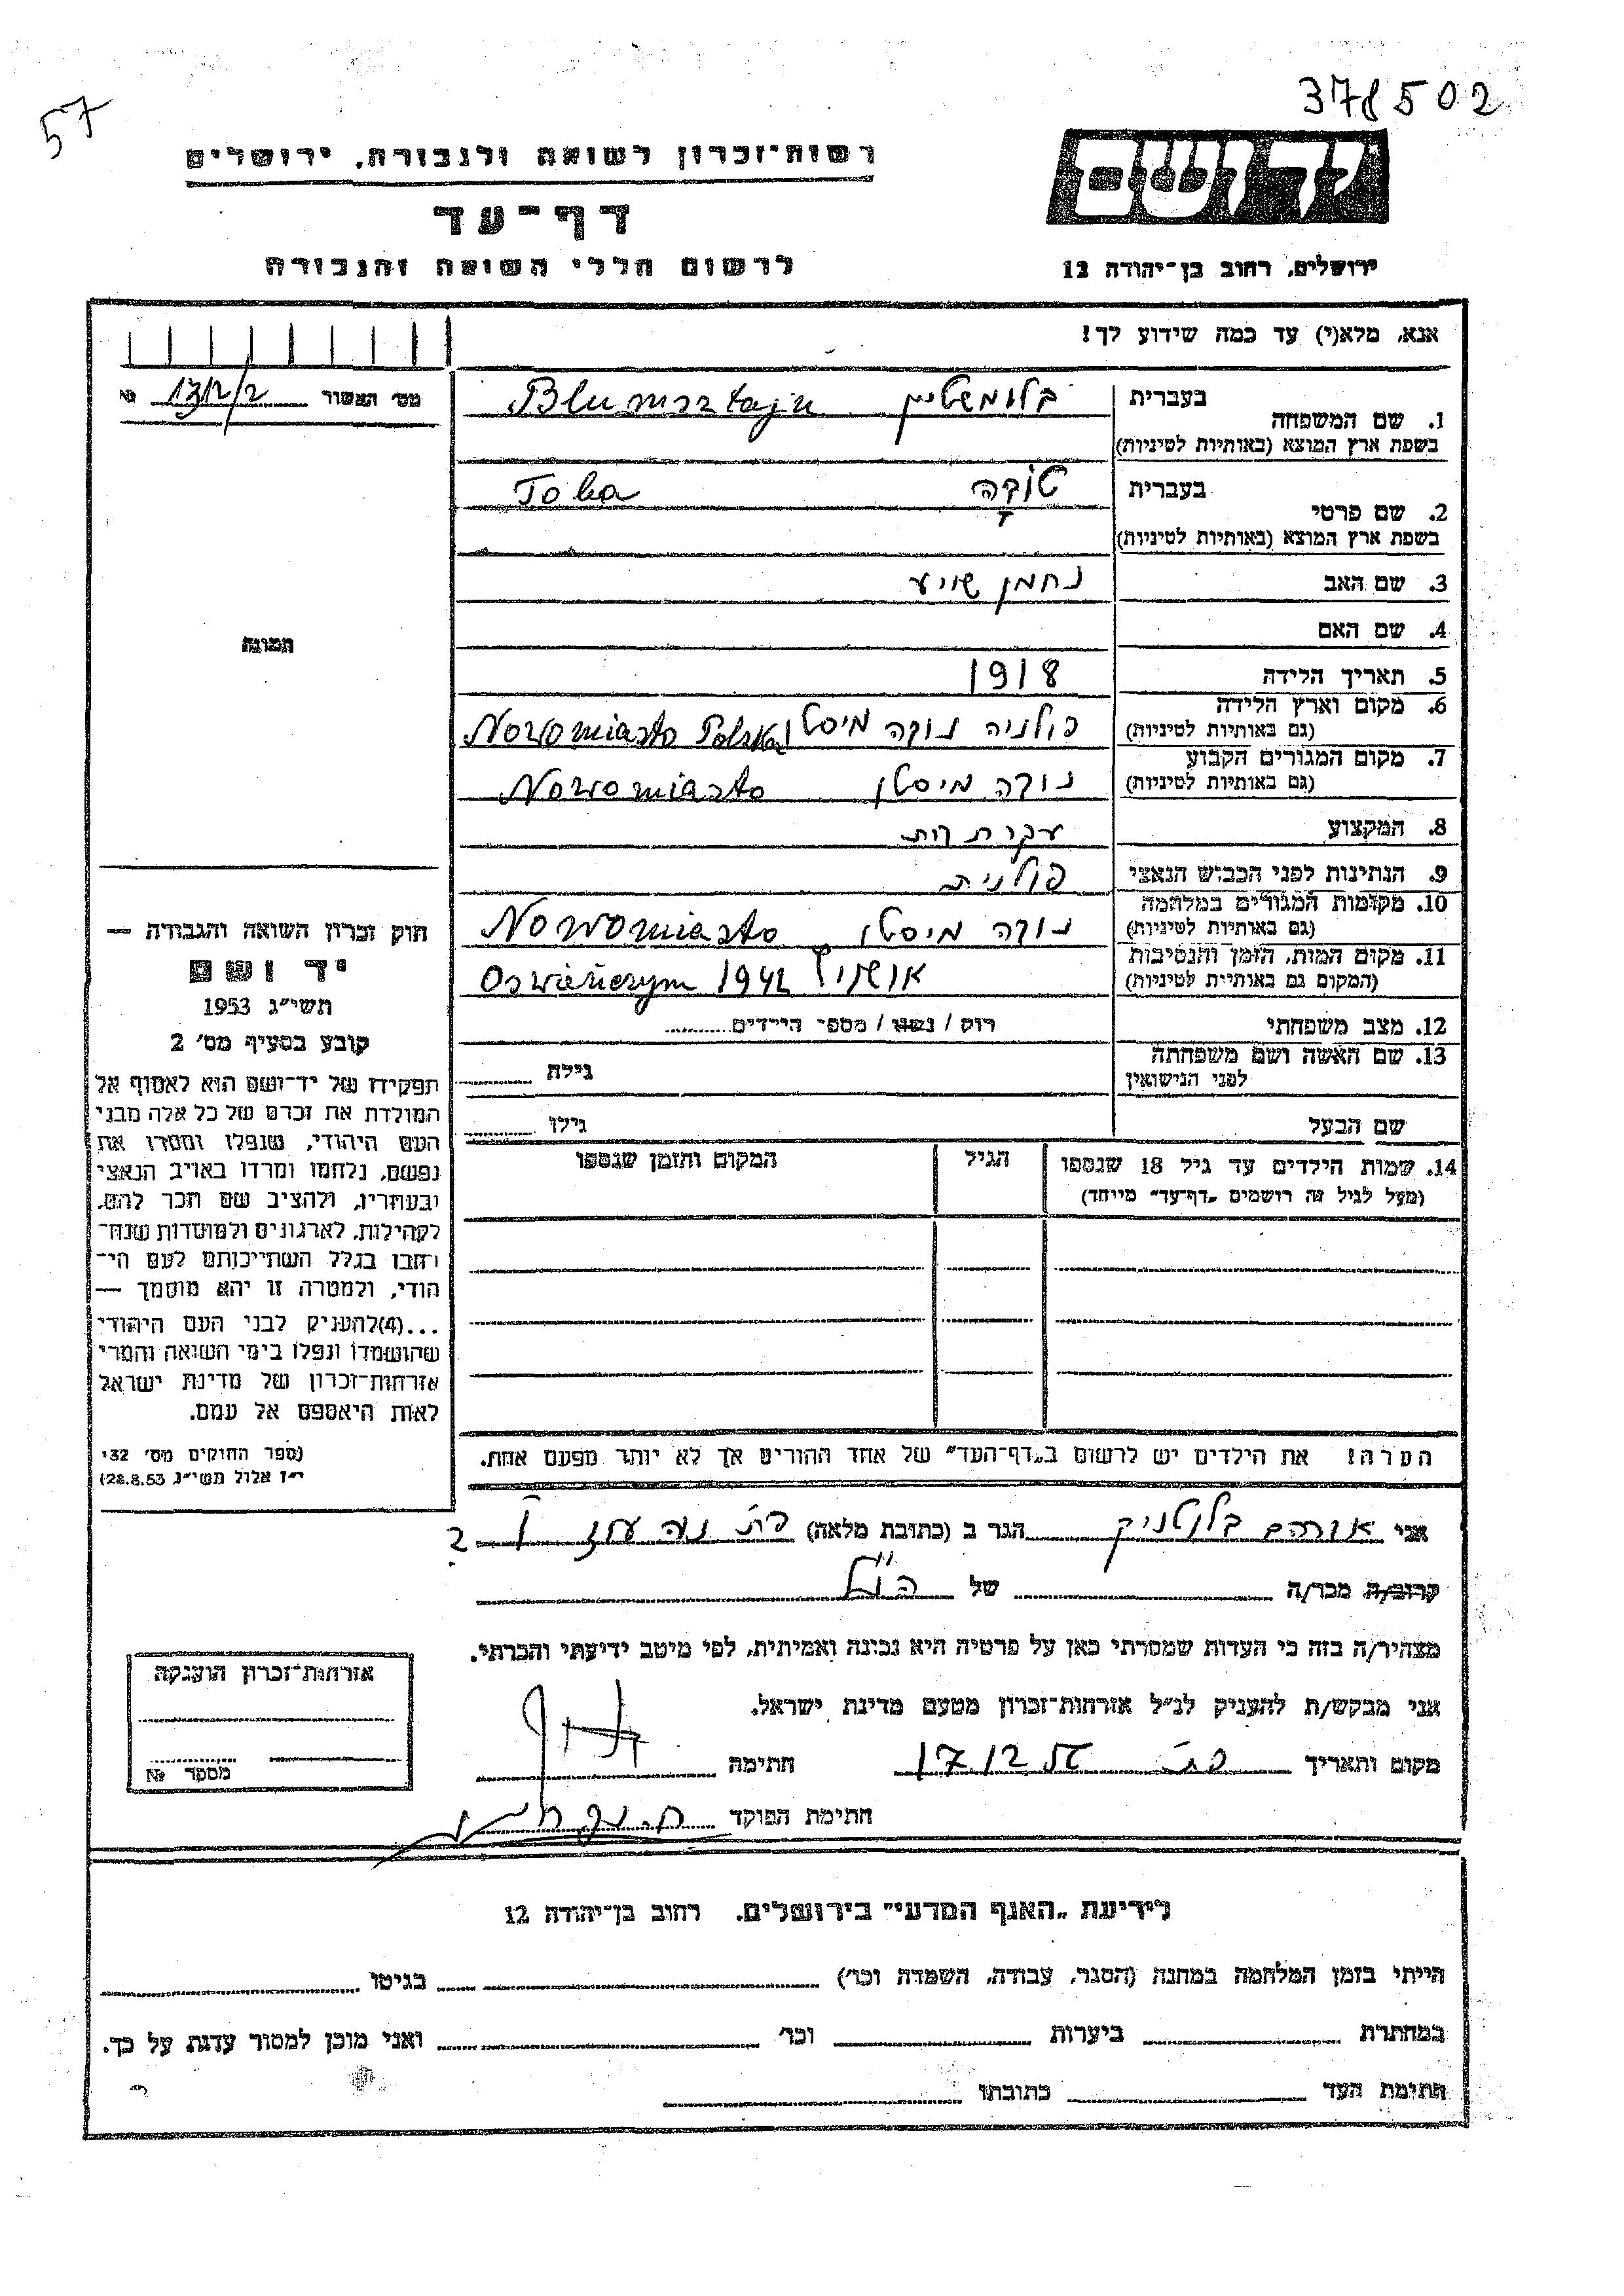 57
378502
רשות־זכרון לשואה ולגבורה, ירושלים
דף־עד
לרשום חללי השואה והגבורה
יד ושם
ירושלים, רחוב בן־יהודה 12
אנא, מלא(י) עד כמה שידוע לך!
מס׳ האשור 1312/2 №
1. שם המשפחה
בעברית
בלומשטיין Blumsztajn
בשפת ארץ המוצא (באותיות לטיניות)
2. שם פרטי
בעברית
טובה Toba
בשפת ארץ המוצא (באותיות לטיניות)
3. שם האב נחמן שויע
4. שם האם
5. תאריך הלידה 1918
6. מקום וארץ הלידה פולניה נובה מיסטו Nowomiasto Polska
(גם באותיות לטיניות)
7. מקום המגורים הקבוע נובה מיסטו Nowomiasto
(גם באותיות לטיניות)
8. המקצוע עקרת בית
9. הנתינות לפני הכבוש הנאצי פולנית
10. מקומות המגורים במלחמה נובה מיסטו Nowomiasto
(גם באותיות לטיניות)
11. מקום המות, הזמן והנסיבות אושויץ 1942 Oswienczym
(המקום גם באותיות לטיניות)
12. מצב משפחתי רוק / נשוי / מספר הילדים
13. שם האשה ושם משפחתה גילה
לפני הנישואין
שם הבעל גילו
14. שמות הילדים עד גיל 18 שנספו הגיל המקום והזמן שנספו
(מעל לגיל זה רושמים „דף־עד״ מיוחד)
הערה! את הילדים יש לרשום ב„דף־העד״ של אחד ההורים אך לא יותר מפעם אחת.
תמונה
חוק זכרון השואה והגבורה —
יד ושם
תשי״ג 1953
קובע בסעיף מס׳ 2
תפקידו של יד־ושם הוא לאסוף אל
המולדת את זכרם של כל אלה מבני
העם היהודי, שנפלו ומסרו את
נפשם, נלחמו ומרדו באויב הנאצי
ובעוזריו, ולהציב שם וזכר להם,
לקהילות, לארגונים ולמוסדות שנח־
רבו בגלל השתייכותם לעם הי־
הודי, ולמטרה זו יהא מוסמך —
...(4)להעניק לבני העם היהודי
שהושמדו ונפלו בימי השואה והמרי
אזרחות־זכרון של מדינת ישראל
לאות היאספם אל עמם.
(ספר החוקים מס׳ 132
י״ז אלול תשי״ג 28.8.53)
אני אברהם בלוטניק הגר ב (כתובת מלאה)
קרוב/ה מכר/ה של הנ״ל
מצהיר/ה בזה כי העדות שמסרתי כאן על פרטיה היא נכונה ואמיתית, לפי מיטב ידיעתי והכרתי.
אני מבקש/ת להעניק לנ״ל אזרחות־זכרון מטעם מדינת ישראל.
מקום ותאריך 17/12 חתימה
חתימת הפוקד
אזרחות־זכרון הוענקה
מספר №
לידיעת „האגף המדעי״ בירושלים, רחוב בן־יהודה 12
הייתי בזמן המלחמה במחנה (הסגר, עבודה, השמדה וכו׳) בגיטו
במחתרת ביערות וכו׳ ואני מוכן למסור עדות על כך.
חתימת העד כתובתו